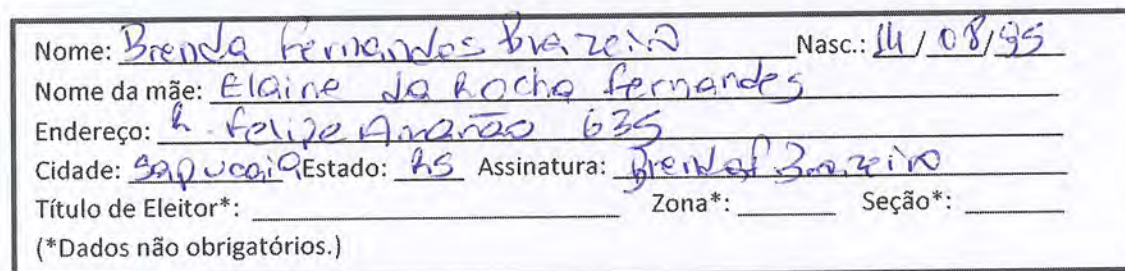 Nome: Brenda Fernandes Brazeiro Nasc.: 14/08/95
Nome da mãe: Elaine da Rocha fernandes
Endereço: R. Felipe 635
Cidade: Sapucaia Estado: RS Assinatura: Brenda f Brazeiro
Título de Eleitor*: Zona*: Seção*:
(*Dados não obrigatórios.)